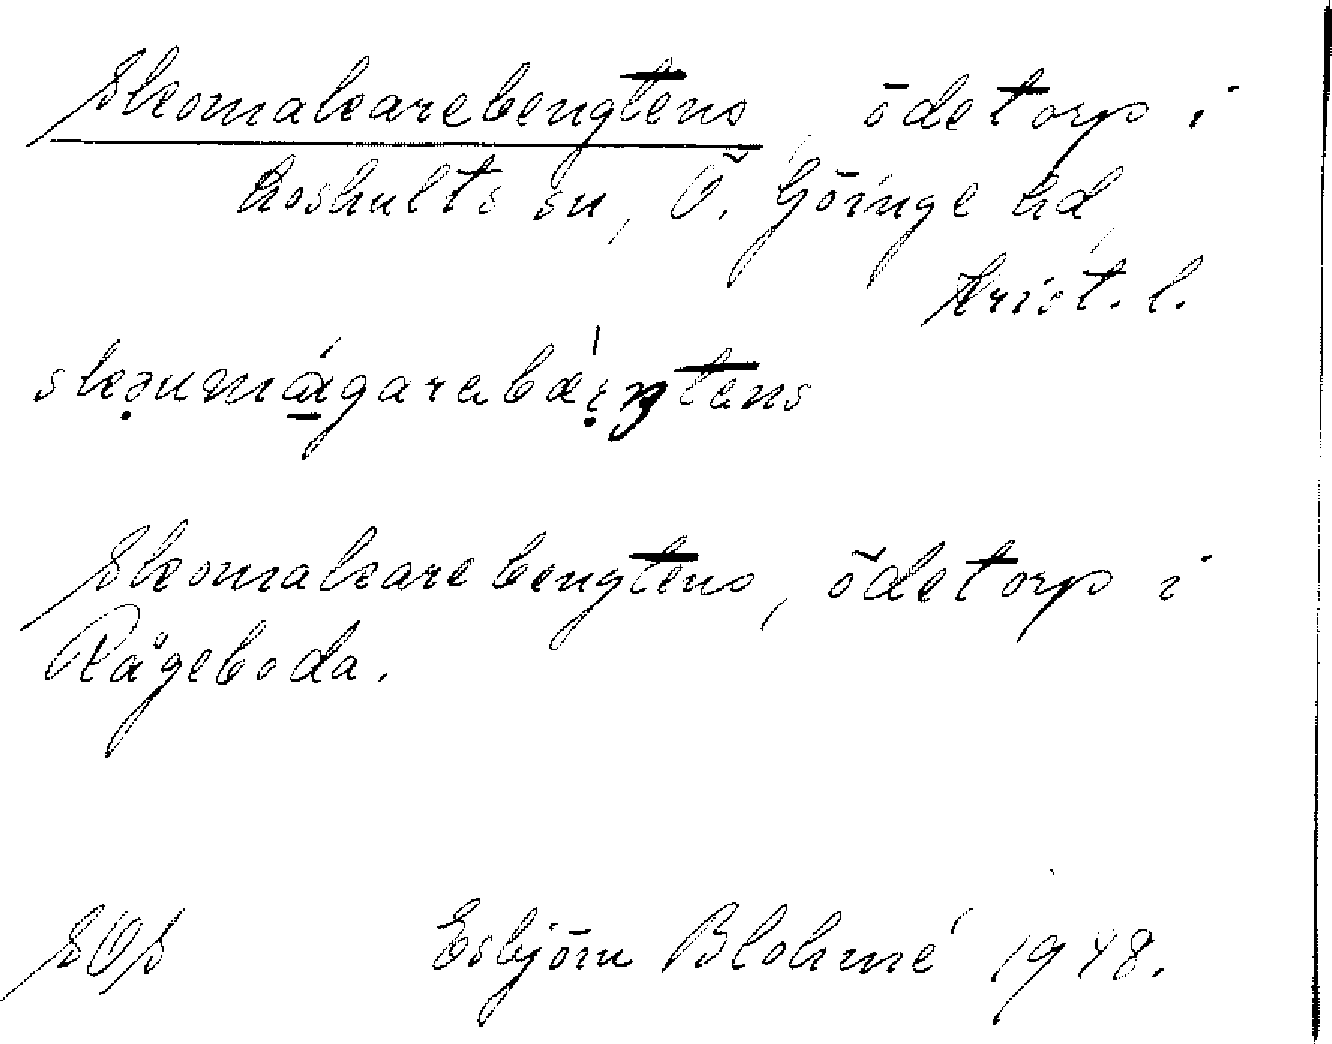 Skomakarebengtens, ödetorp i
Loshults sn, Ö. Göinge hd,
Krist. l.
Skomakarebengtens, ödetorp i
Rågeboda.
SOS Esbjörn Blohmé 1948.